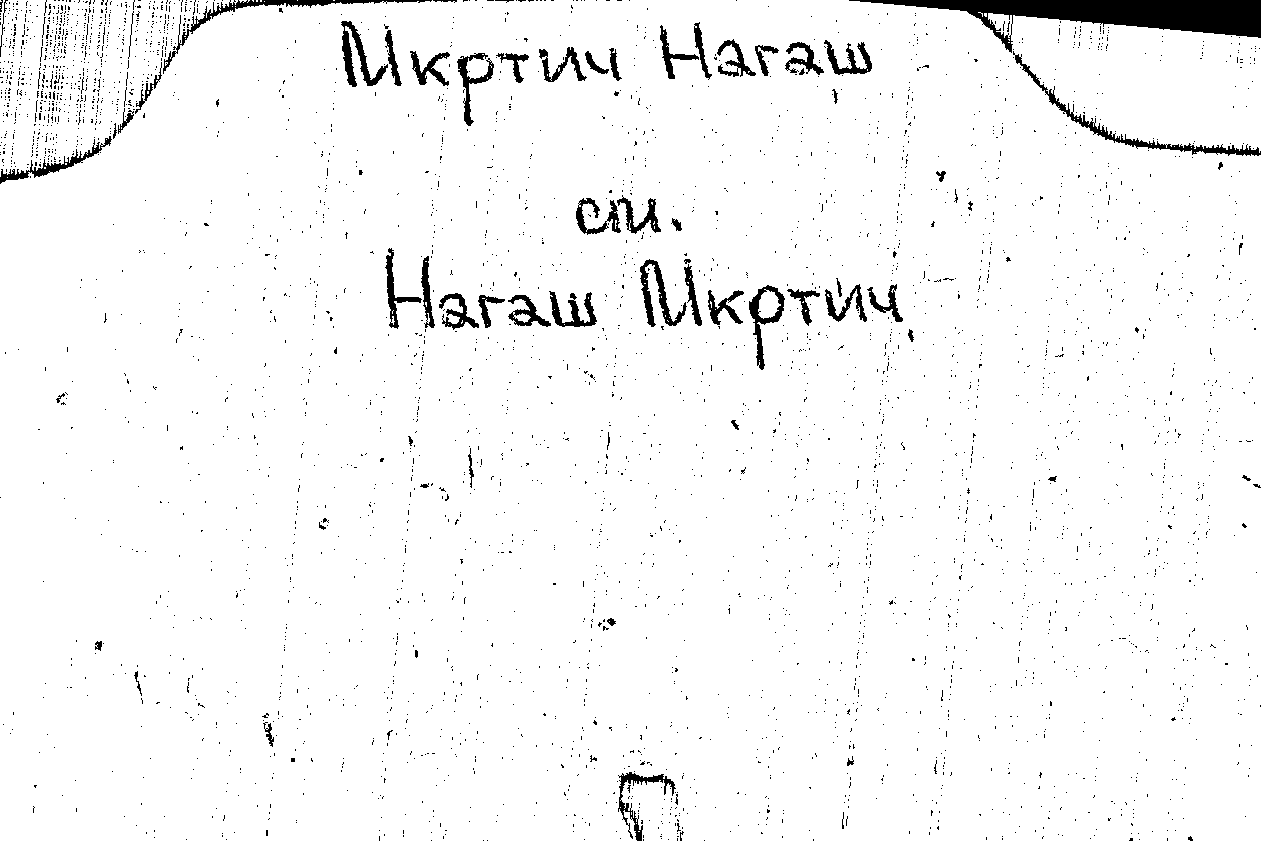 Мкртич Нагаш
см.
Нагаш Мкртич